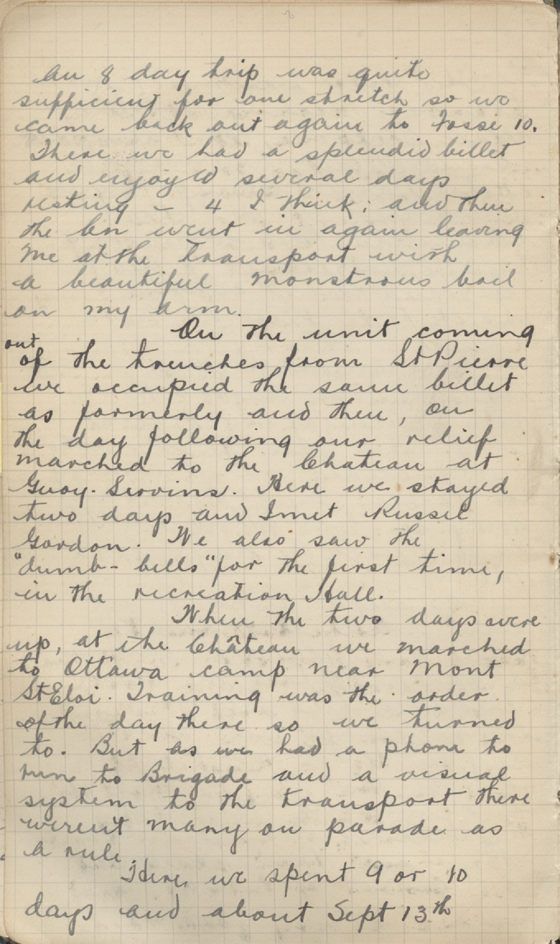 An 8 day trip was quite
sufficient for one stretch so we
came back out again to Fosse 10.
There we had a splendid billet
and enjoyed several days
resting - 4 I think; and then
the bn went in again leaving
me at the Transport with
a beautiful monstrous boil
on my arm.
On the unit coming
out
of the trenches from St Pierre
we occupied the same billet
as formerly and then, on
the day following our relief
marched to the Chateau at
Guoy-Servins. Here we stayed
two days and I met Russel
Gordon. We also saw the
"dumb-bells" for the first time,
in the recreation Hall.
When the two days were
up, at the Château we marched
to Ottawa camp near Mont
St Eloi. Training was the order
of the day there so we turned
to. But as we had a phone to
run to Brigade and a visual
system to the transport there
weren't many on parade as
a rule.
Here we spent 9 or 10
days and about Sept 13th